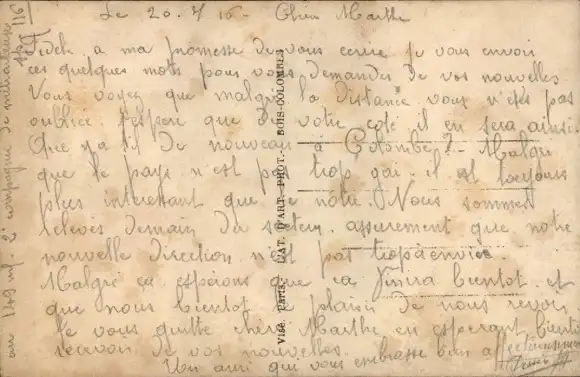 Le 20. 7 16 - Chère Marthe
Fidèle a ma promesse de vous ecrire je vous envoi
ces quelques mots pour vous demandez de vos nouvelles
Vous voyez que malgré la distance vous n'etes pas
oubliée j'espere que de votre coté il en sera ainsi
Que y a t'il de nouveau à Colombe? Malgré
que le pays n'est pas trop gai il est toujours
plus interessant que le notre. Nous sommes
relevés demain du secteur, assurement que notre
nouvelle direction n'est pas trop à envier
Malgré ça esperons que ça finira bientot et
que nous bientot le plaisir de nous revoir.
Je vous quitte chère Marthe en esperant bientot
recevoir de vos nouvelles.
Un ami qui vous embrasse bien affectueusement
au 143 inf. 2e compagnie de mitrailleuse
116
Visé Paris. CAT. D'ART. PHOT. BOIS-COLOMBES